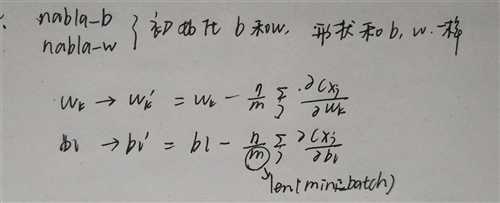 nabla-b
nabla-w } 初始化 b 和 w, 形状和 b, w 一样
w_k → w_k' = w_k - η/m Σ_j ∂C_{x_j}/∂w_k
b_l → b_l' = b_l - η/m Σ_j ∂C_{x_j}/∂b_l
len(mini-batch)